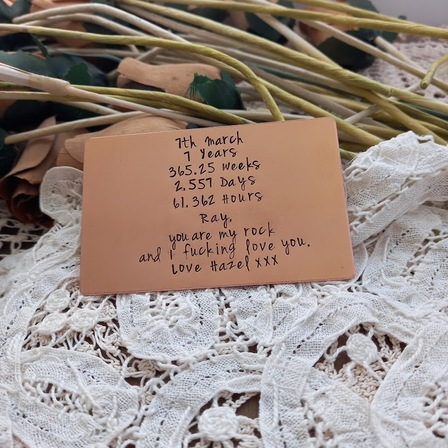 7th March
7 Years
365.25 weeks
2,557 Days
61,362 Hours
Ray,
you are my rock
and I fucking love you.
Love Hazel xxx